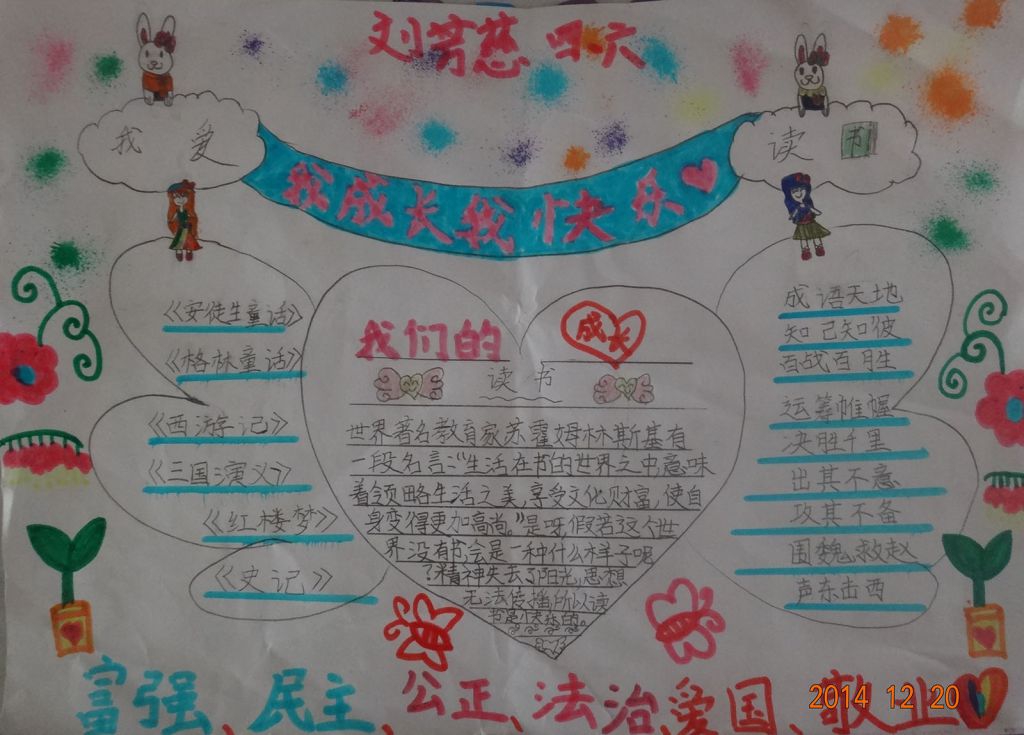 刘芳慈 四六
我 爱
读 书
我成长我快乐
《安徒生童话》
《格林童话》
《西游记》
《三国演义》
《红楼梦》
《史记》
我们的
成长
读书
世界著名教育家苏霍姆林斯基有
一段名言:“生活在书的世界之中意味
着领略生活之美,享受文化财富,使自
身变得更加高尚。”是呀,假若这个世
界没有书会是一种什么样子呢
?精神失去了阳光,思想
无法传播,所以读
书是
成语天地
知己知彼
百战百胜
运筹帷幄
决胜千里
出其不意
攻其不备
围魏救赵
声东击西
富强、民主、公正、法治、爱国、敬业
2014 12 20